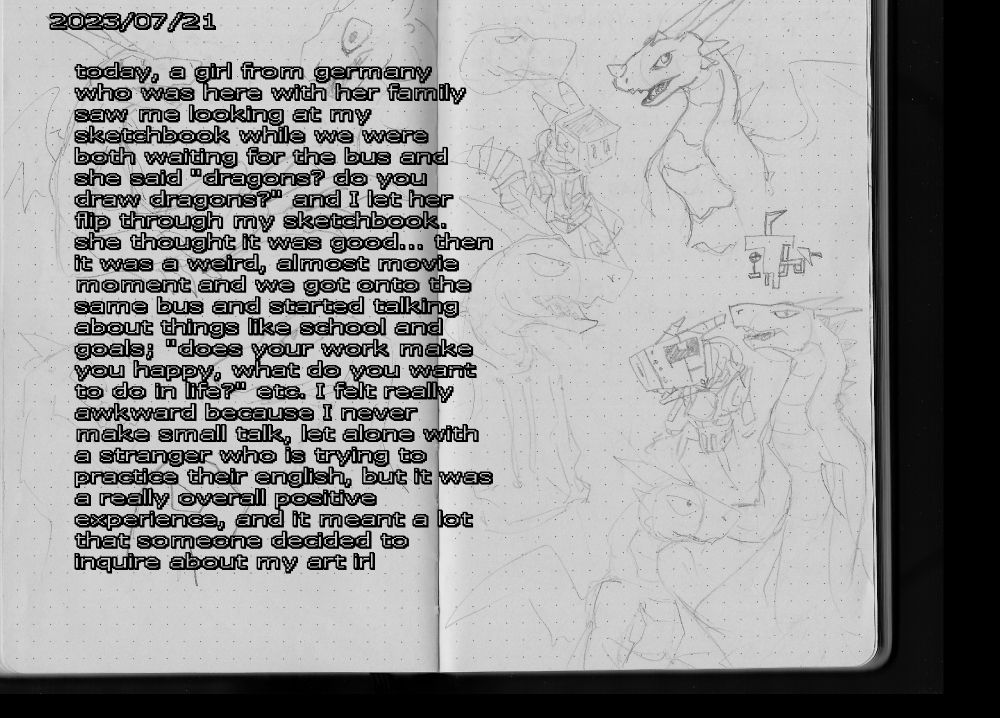 2023/07/21
today, a girl from germany
who was here with her family
saw me looking at my
sketchbook while we were
both waiting for the bus and
she said "dragons? do you
draw dragons?" and I let her
flip through my sketchbook.
she thought it was good... then
it was a weird, almost movie
moment and we got onto the
same bus and started talking
about things like school and
goals; "does your work make
you happy, what do you want
to do in life?" etc. I felt really
awkward because I never
make small talk, let alone with
a stranger who is trying to
practice their english, but it was
a really overall positive
experience, and it meant a lot
that someone decided to
inquire about my art irl